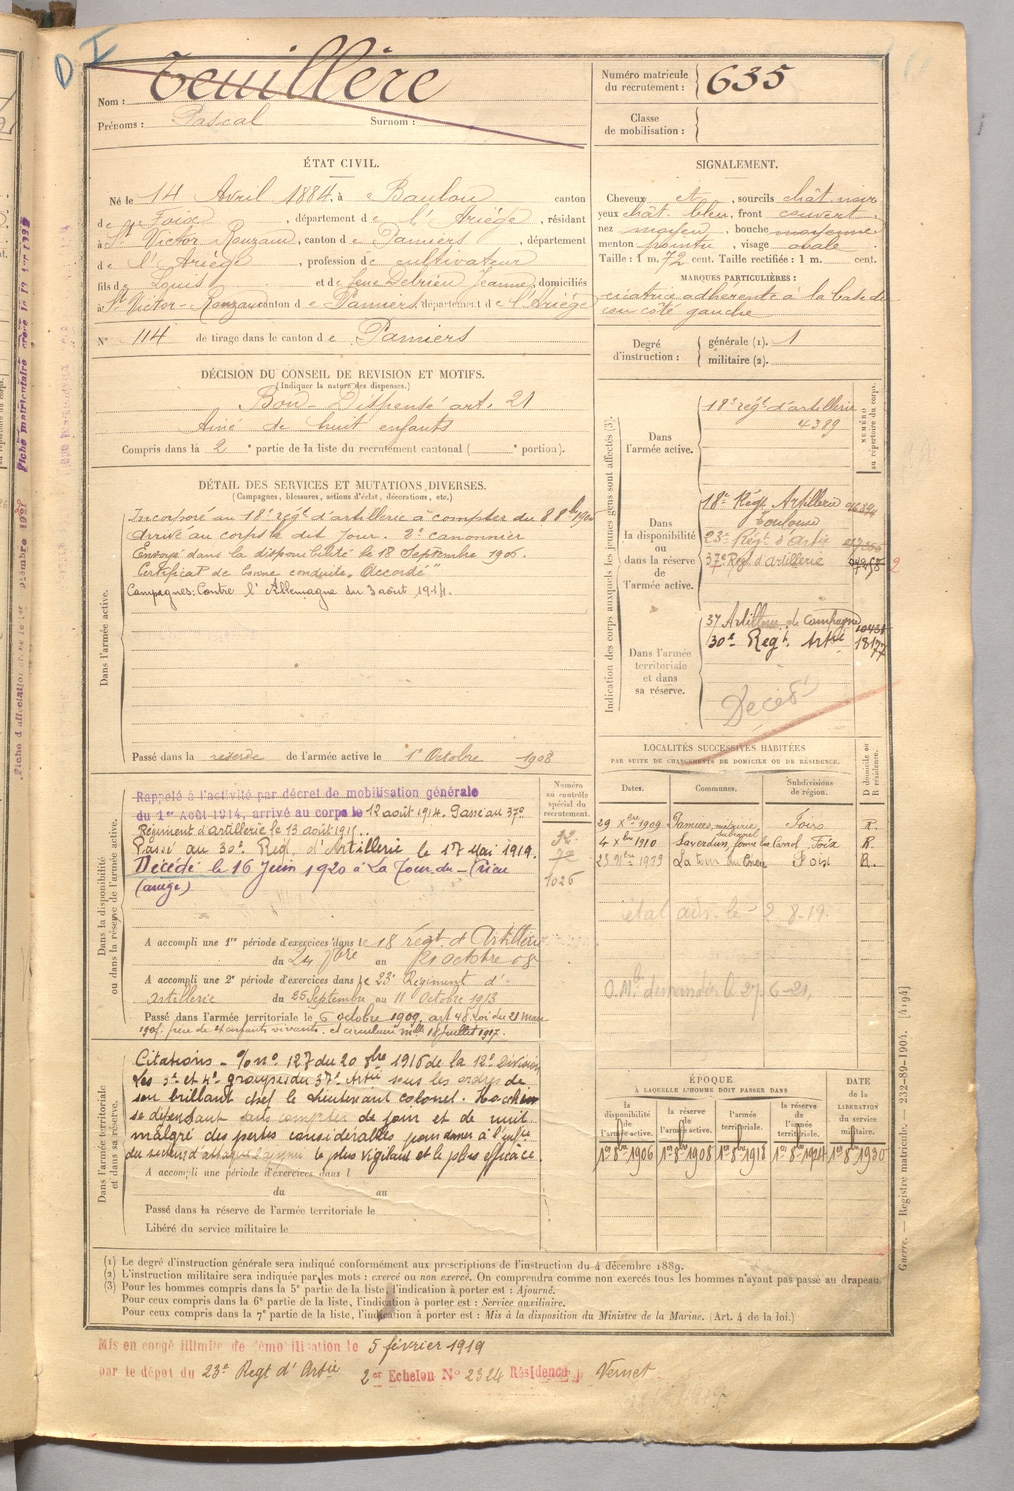 Nom : Teuillère
Prénoms : Pascal Surnom :
Numéro matricule du recrutement : 635
Classe de mobilisation :
ÉTAT CIVIL.
Né le 14 Avril 1884, à Baulou canton
de Foix, département de l'Ariège, résidant
à St Victor Rouzaud, canton de Pamiers, département
de l'Ariège, profession de cultivateur
fils de Louis et de feue Jeanne domiciliés
à St Victor-Rouzaud canton de Pamiers, département de l'Ariège
N° 114 de tirage dans le canton de Pamiers
SIGNALEMENT.
Cheveux et, sourcils chât. noir
yeux chât. bleu, front couvert
nez moyen, bouche moyenne
menton pointu, visage ovale
Taille : 1 m. 72 cent. Taille rectifiée : 1 m. cent.
MARQUES PARTICULIÈRES :
cicatrice adhérente à la base du
cou côté gauche
Degré d'instruction : générale (1). 1
militaire (2).
DÉCISION DU CONSEIL DE REVISION ET MOTIFS.
(Indiquer la nature des dispenses.)
Bon - Dispense art. 21
Aîné de huit enfants
Compris dans la 2e partie de la liste du recrutement cantonal ( e portion).
DÉTAIL DES SERVICES ET MUTATIONS DIVERSES.
(Campagnes, blessures, actions d'éclat, décorations, etc.)
Dans l'armée active.
Incorporé au 18e régt d'artillerie à compter du 8 8bre 1905
Arrivé au corps le dit jour. 2e canonnier
Envoyé dans la disponibilité le 18 Septembre 1906.
Certificat de bonne conduite "Accordé"
Campagnes: Contre l'Allemagne du 3 août 1914.
Passé dans la réserve de l'armée active le 1er Octobre 1908
Indication des corps auxquels les jeunes gens sont affectés (3).
NUMÉRO au répertoire du corps.
Dans l'armée active.
18e régt d'artillerie
4389
Dans la disponibilité ou dans la réserve de l'armée active.
18e Régt Artillerie
Toulouse
23e Régt d'Artie
37e Régt d'artillerie
Dans l'armée territoriale et dans sa réserve.
37 Artillerie de Campagne
30e Regt. Artie 18177
Décédé
Dans la disponibilité ou dans la réserve de l'armée active.
Numéro au contrôle spécial du recrutement.
Rappelé à l'activité par décret de mobilisation générale
du 1er Août 1914, arrivé au corps le 12 août 1914. Passé au 37e
Régiment d'artillerie le 13 août 1915.
Passé au 30e Régt d'Artillerie le 17 Mai 1919.
Décédé le 16 Juin 1920 à La Tour-du-Crieu
(ariège)
1026
A accompli une 1re période d'exercices dans le 18 régt d'Artillerie
du 24 7bre au 21 octobre 08
A accompli une 2e période d'exercices dans le 23e Régiment d'
Artillerie du 25 Septembre au 11 Octobre 1913
Passé dans l'armée territoriale le 6 octobre 1909, art 48 Loi du 21 mars
1905, père de 4 enfants vivants et circulaire mlle 18 juillet 1917.
LOCALITÉS SUCCESSIVES HABITÉES
PAR SUITE DE CHANGEMENTS DE DOMICILE OU DE RÉSIDENCE.
Dates. Communes. Subdivisions de région. D domicile ou R résidence.
29 Xbre 1909 Pamiers, métairie Foix R.
4 Xbre 1910 Saverdun, ferme Foix R.
1913 La tour du Crieu Foix R.
O.M. demandés le 27-6-21,
Dans l'armée territoriale et dans sa réserve.
Citations - O/no 127 du 20 8bre 1916 de la 12e Division
Les 3e et 4e groupes du 37e Artie sous les ordres de
son brillant chef le lieutenant colonel
se dépensant sans compter de jour et de nuit
malgré des pertes considérables pour donner à l'inftie
du secteur d'attaque l'appui le plus vigilant et le plus efficace.
A accompli une période d'exercices dans l
du au
Passé dans la réserve de l'armée territoriale le
Libéré du service militaire le
ÉPOQUE
À LAQUELLE L'HOMME DOIT PASSER DANS
la disponibilité de l'armée active. la réserve de l'armée active. l'armée territoriale. la réserve de l'armée territoriale. DATE de la LIBÉRATION du service militaire.
1er 8bre 1906 1er 8bre 1908 1er 8bre 1918 1er 8bre 1924 1er 8bre 1930
(1) Le degré d'instruction générale sera indiqué conformément aux prescriptions de l'instruction du 4 décembre 1889.
(2) L'instruction militaire sera indiquée par les mots : exercé ou non exercé. On comprendra comme non exercés tous les hommes n'ayant pas passé au drapeau.
(3) Pour les hommes compris dans la 5e partie de la liste, l'indication à porter est : Ajourné.
Pour ceux compris dans la 6e partie de la liste, l'indication à porter est : Service auxiliaire.
Pour ceux compris dans la 7e partie de la liste, l'indication à porter est : Mis à la disposition du Ministre de la Marine. (Art. 4 de la loi.)
Guerre. — Registre matricule. 232-89-1904. [4194]
Mis en congé illimité de démobilisation le 5 février 1919
par le dépôt du 23e Regt d'Artie 2er Echelon N° 2324 Résidence Vernet